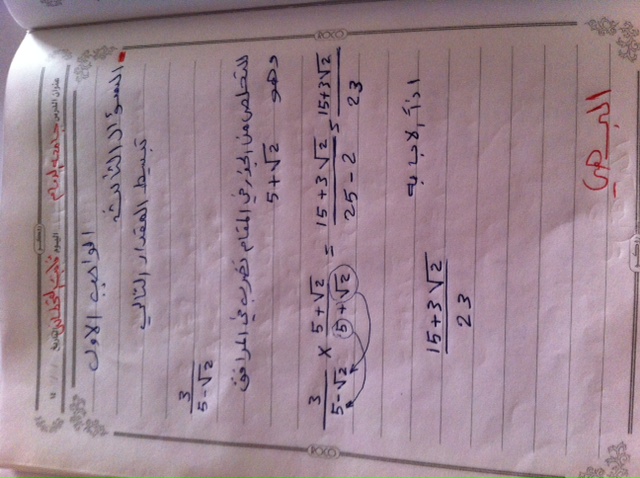 ROCO
الواجب الاول
السؤال الثالث
تبسيط المقدار التالي
3
5-√2
للتخلص من الجذر في المقام نضرب في المرافق
وهو 5+√2
3/5-√2 × 5+√2/5+√2 = 15+3√2/25-2 = 15+3√2/23
اذاً الاجابه
15+3√2
23
ROCO